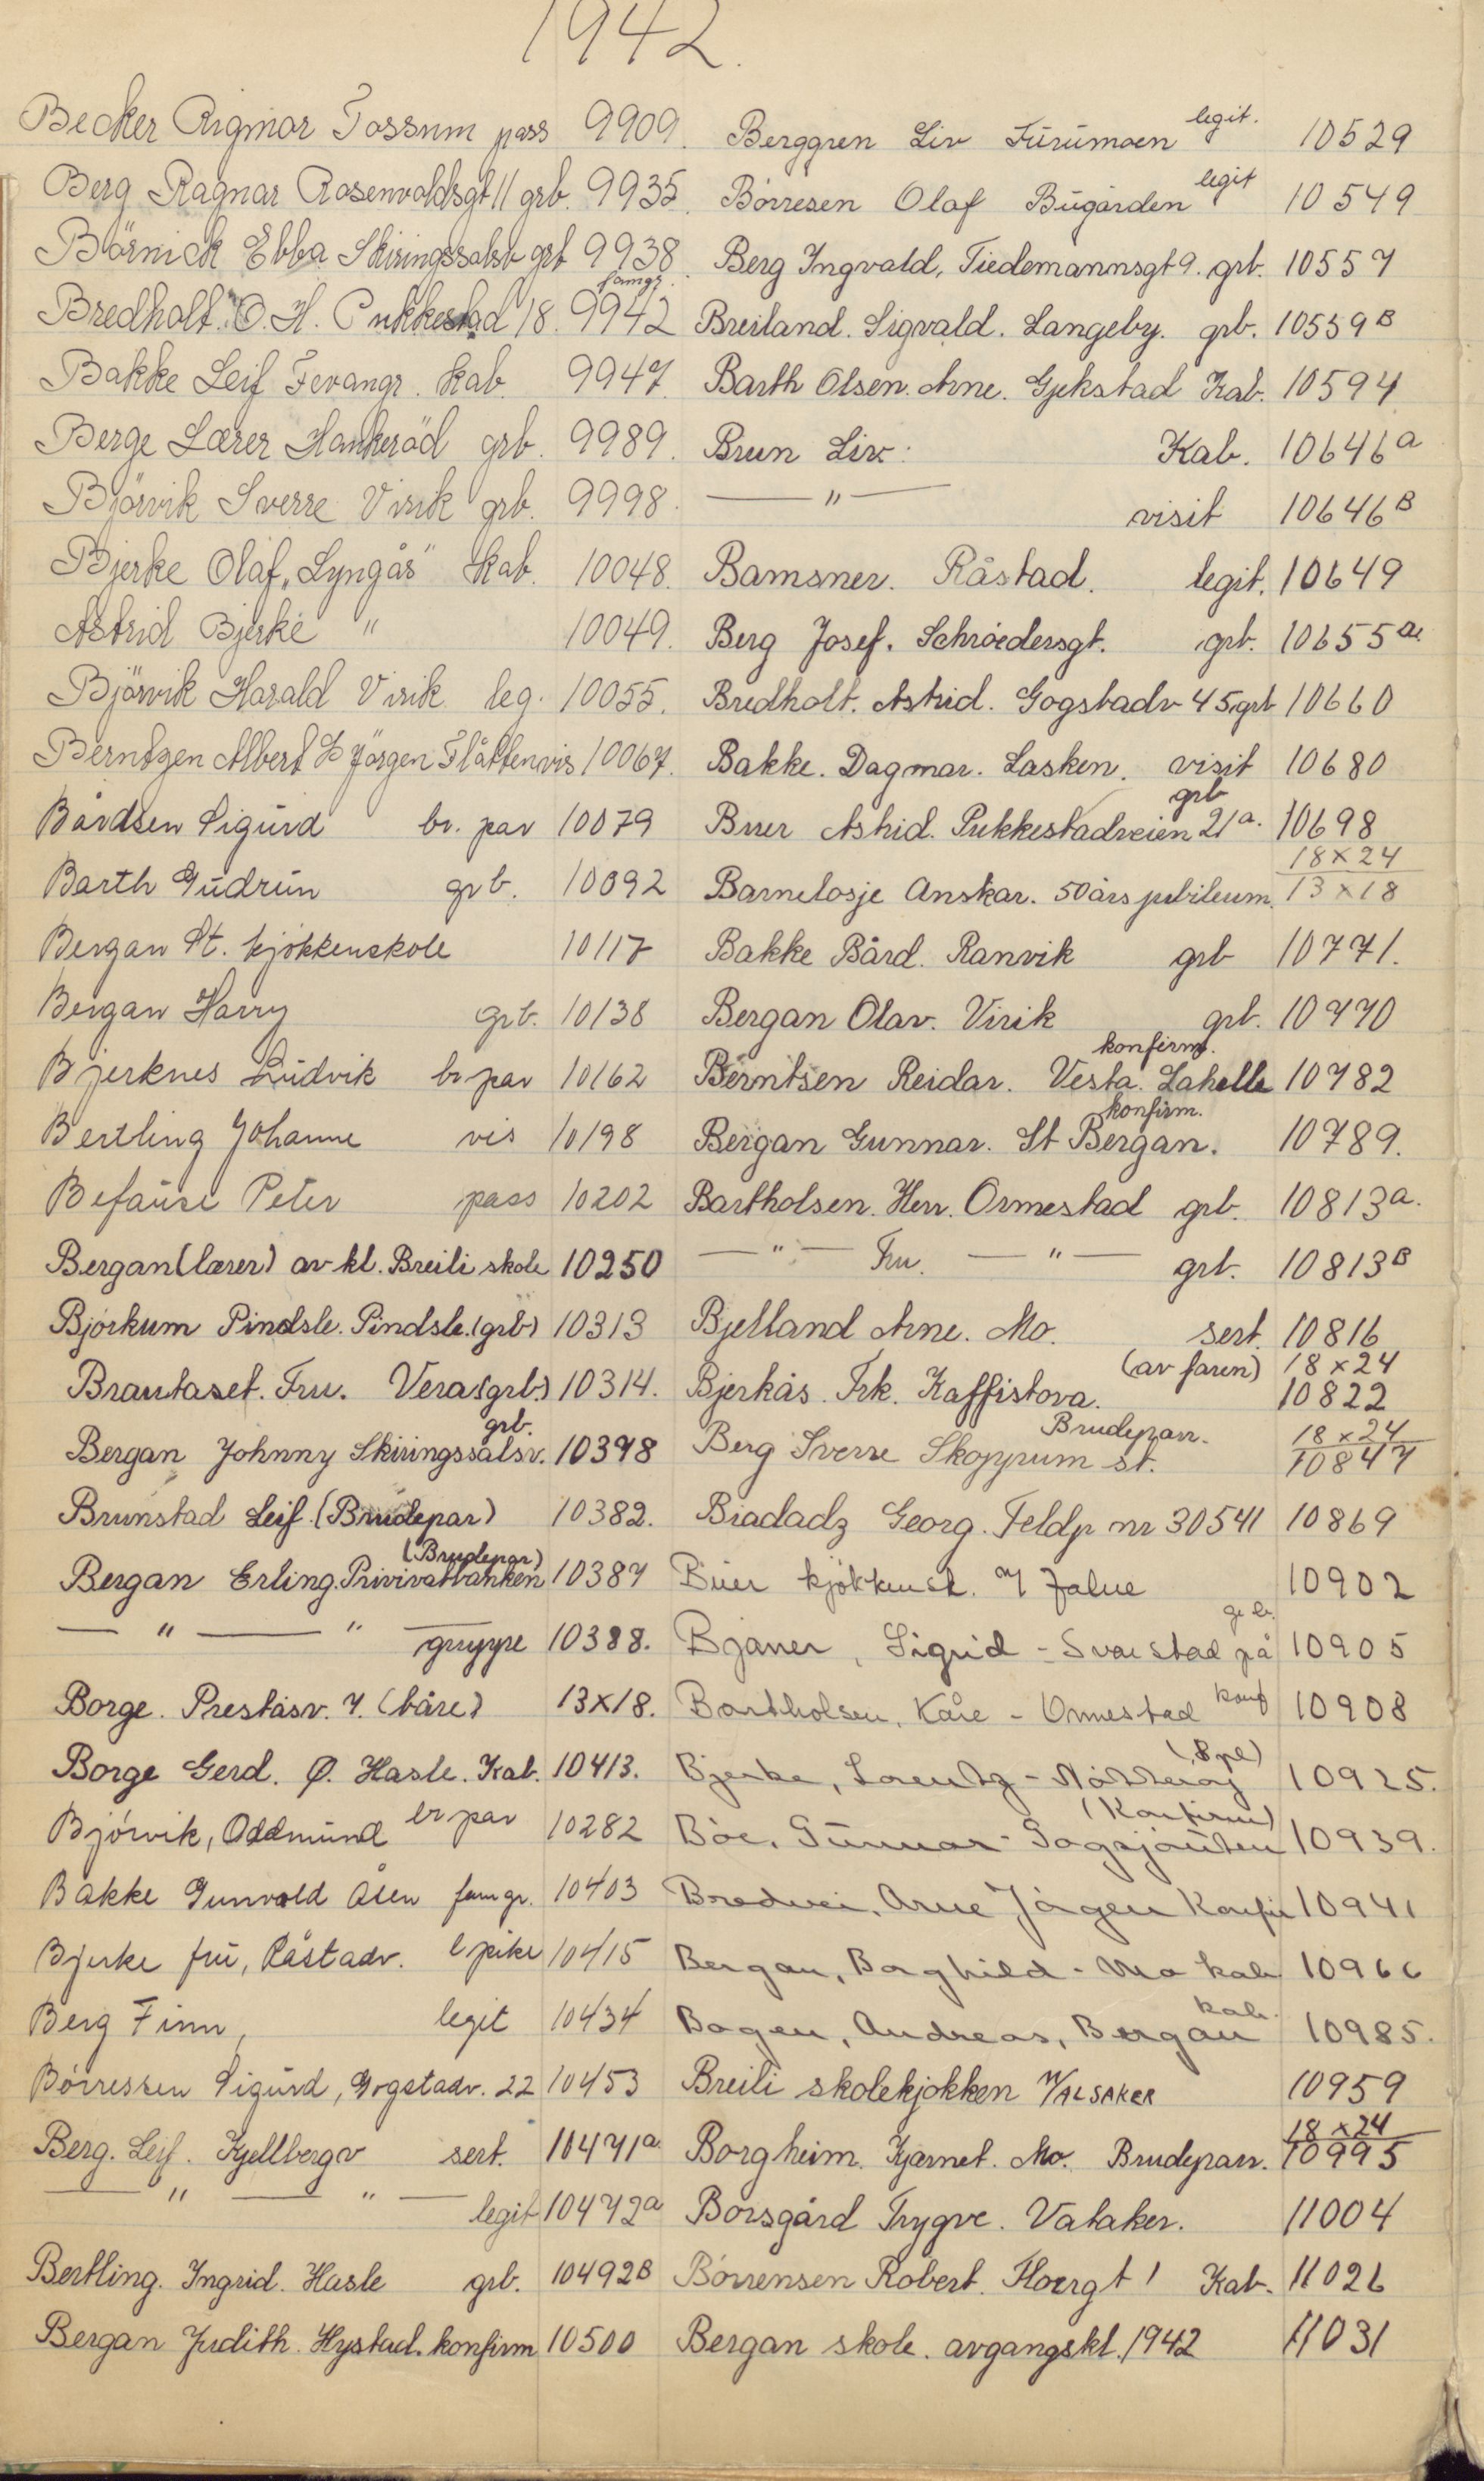 1942.
Becker Rigmor Fossum pass 9909.
Berg Ragnar Rosenvoldsgt 11 grb. 9935.
Börnick Ebba Skiringssalsv grb 9938.
Bredholt O. H. Pukkestad 18. famgr. 9942
Bakke Leif Fevangr. kab. 9947.
Berge Lærer Hankeröd grb. 9989.
Björvik Sverre Virik grb. 9998.
Bjerke Olaf, "Lyngås" kab. 10048.
Astrid Bjerke " 10049.
Björvik Harald Virik leg. 10055.
Berntzen Albert & Jörgen Flåtten vis 10067.
Bårdsen Sigurd br. par 10079
Barth Gudrun grb. 10092
Bergan St. kjøkkenskole 10117
Bergan Harry grb. 10138
Bjerknes Ludvik br par 10162
Bertling Johanne vis 10198
Befaure Peter pass 10202
Bergan (lærer) av kl. Breili skole 10250
Bjórkum Pindsle. Pindsle. (grb) 10313
Brautaset. Fru. Vera (grb.) 10314.
Bergan Johnny Skiringssalsv. grb. 10378
Brunstad Leif. (Brudepar) 10382.
Bergan Erling. Privivatbanken (Brudepar) 10387
— " — " — gruppe 10388.
Borge. Preståsv. 7. (båre) 13x18.
Borge Gerd. Ø. Hasle. Kab. 10413.
Bjórvik, Oddmund br par 10282
Bakke Gunvald Åsen fam gr. 10403
Bjerke fru, Råstadv. l pike 10415
Berg Finn, legit 10434
Bórressen Sigurd, Gogstadv. 22 10453
Berg. Leif. Kjellbergv sert. 10471a.
— " — " — legit 10472a
Bertling. Ingrid. Hasle grb. 10492B
Bergan Judith. Hystad. konfirm 10500
Berggren Liv Furumoen legit. 10529
Bórresen Olaf Bugården legit 10549
Berg Ingvald, Tiedemannsgt 9. grb. 10557
Breiland. Sigvald. Langeby. grb. 10559B
Barth Olsen. Arne. Gjekstad Kab. 10594
Brun Liv. Kab. 10646a
— " — visit 10646B
Bamsner. Råstad. legit. 10649
Berg Josef. Schróedersgt. grb. 10655a.
Bredholt. Astrid. Gogstadv 45. grb 10660
Bakke. Dagmar. Lasken. visit 10680
Bruer Astrid. Pukkestadveien 21a. grb 10698
Barnelosje Anskar. 50 års jubileum. 18x24 13x18
Bakke Bård. Ranvik grb 10771.
Bergan Olav. Virik grb. 10770
Berntsen Reidar. Vesta. Lahelle konfirm. 10782
Bergan Gunnar. St Bergan. konfirm. 10789.
Bartholsen. Herr. Ormestad grb. 10813a.
— " — Fru. — " — grb. 10813B
Bjelland Arne. Mo. sert. 10816
Bjerkås. Frk. Kaffistova. (av faren) 18x24 10822
Berg Sverre Skoppum st. Brudeparr. 18x24 10847
Biadadz Georg. Feldp nr 30541 10869
Buer kjökkensk. 10902
Bjaner, Sigrid - Svarstad på grb. 10905
Bartholsen, Kåre - Ormestad konf 10908
Bjerke, Lorentz - Nötteröy (8 pl) 10925.
Bóe, Gunnar - (Konfirm) 10939.
Bredvei, Arne Jørgen Konfir 10941
Bergan, Borghild - Mo kab 10966
Bogen, Andreas, Bergan kab. 10985.
Breili skolekjokken m/ALSAKER 10959
Borgheim. Kjærnet. Mo. Brudeparr. 18x24 10995
Borsgård Trygve. Vataker. 11004
Bórrensen Robert. Floergt 1 Kab. 11026
Bergan skole. avgangskl. 1942 11031